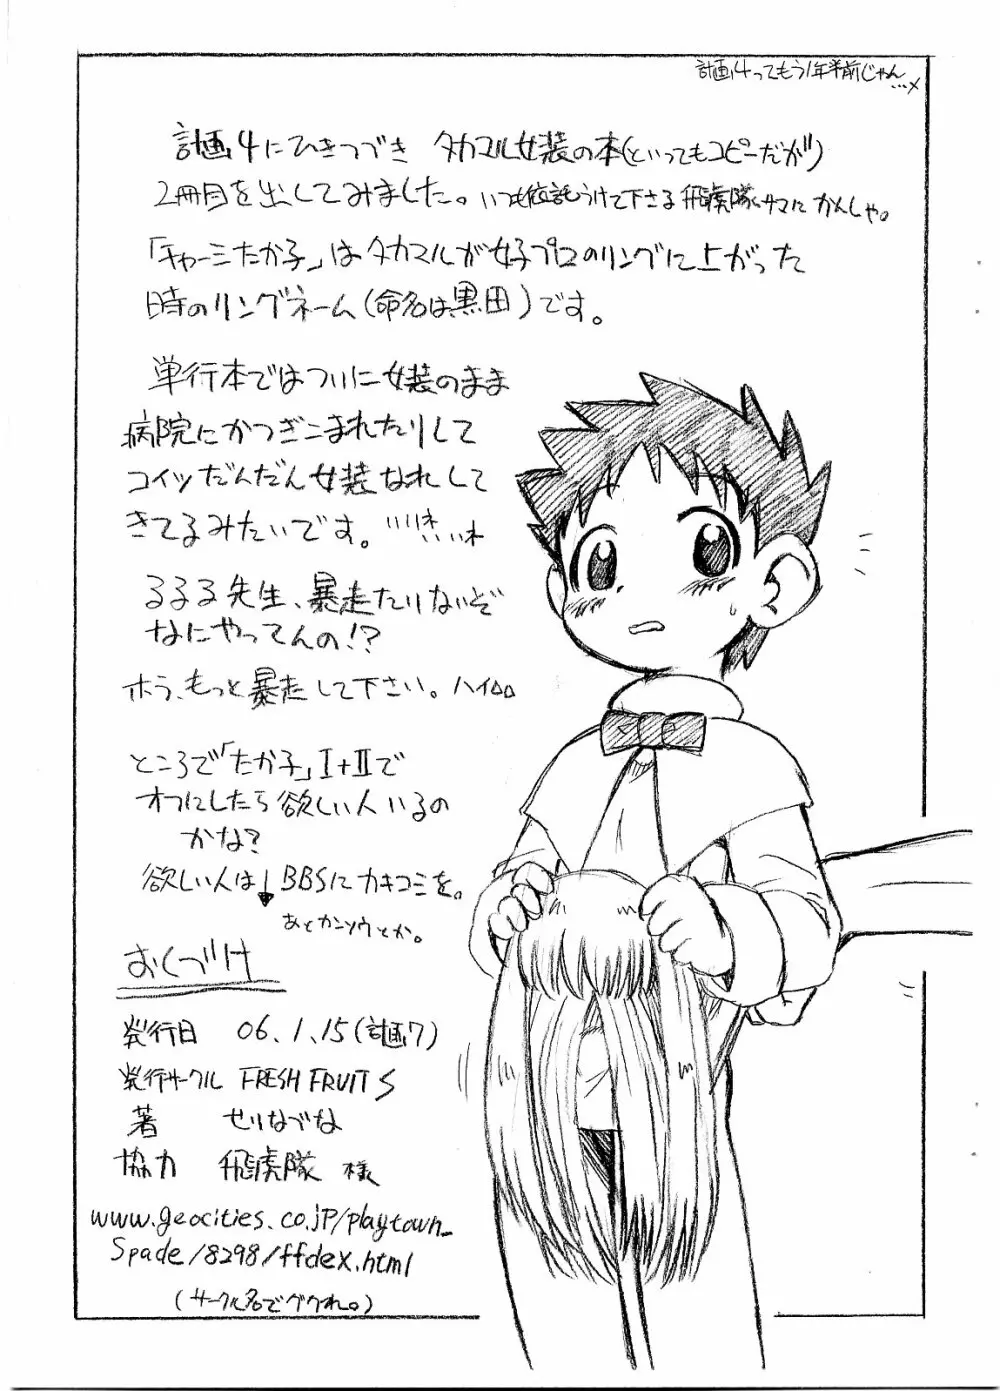 計画4ってもう1年半前じゃん…×
計画4にひきつづき タカマル女装の本(といってもコピーだが)
2冊目を出してみました。いつも依託うけて下さる飛虎隊サマにかんしゃ。
「チャーミたか子」はタカマルが女子プロのリングに上がった
時のリングネーム(命名は黒田)です。
単行本ではついに女装のまま
病院にかつぎこまれたりして
コイツだんだん女装なれして
きてるみたいです。
るるる先生、暴走たりないぞ
なにやってんの!?
ホラ、もっと暴走して下さい。ハイ△△
ところで「たか子」I+IIで
オフにしたら欲しい人いるの
かな?
欲しい人は↓BBSにカキコミを。
あとカンソウとか。
おくづけ
発行日 06.1.15(計画7)
発行サークル FRESH FRUITS
著 せりなずな
協力 飛虎隊 様
www.geocities.co.jp/playtown_
Spade/8298/ffdex.html
(サークル名でググれ。)